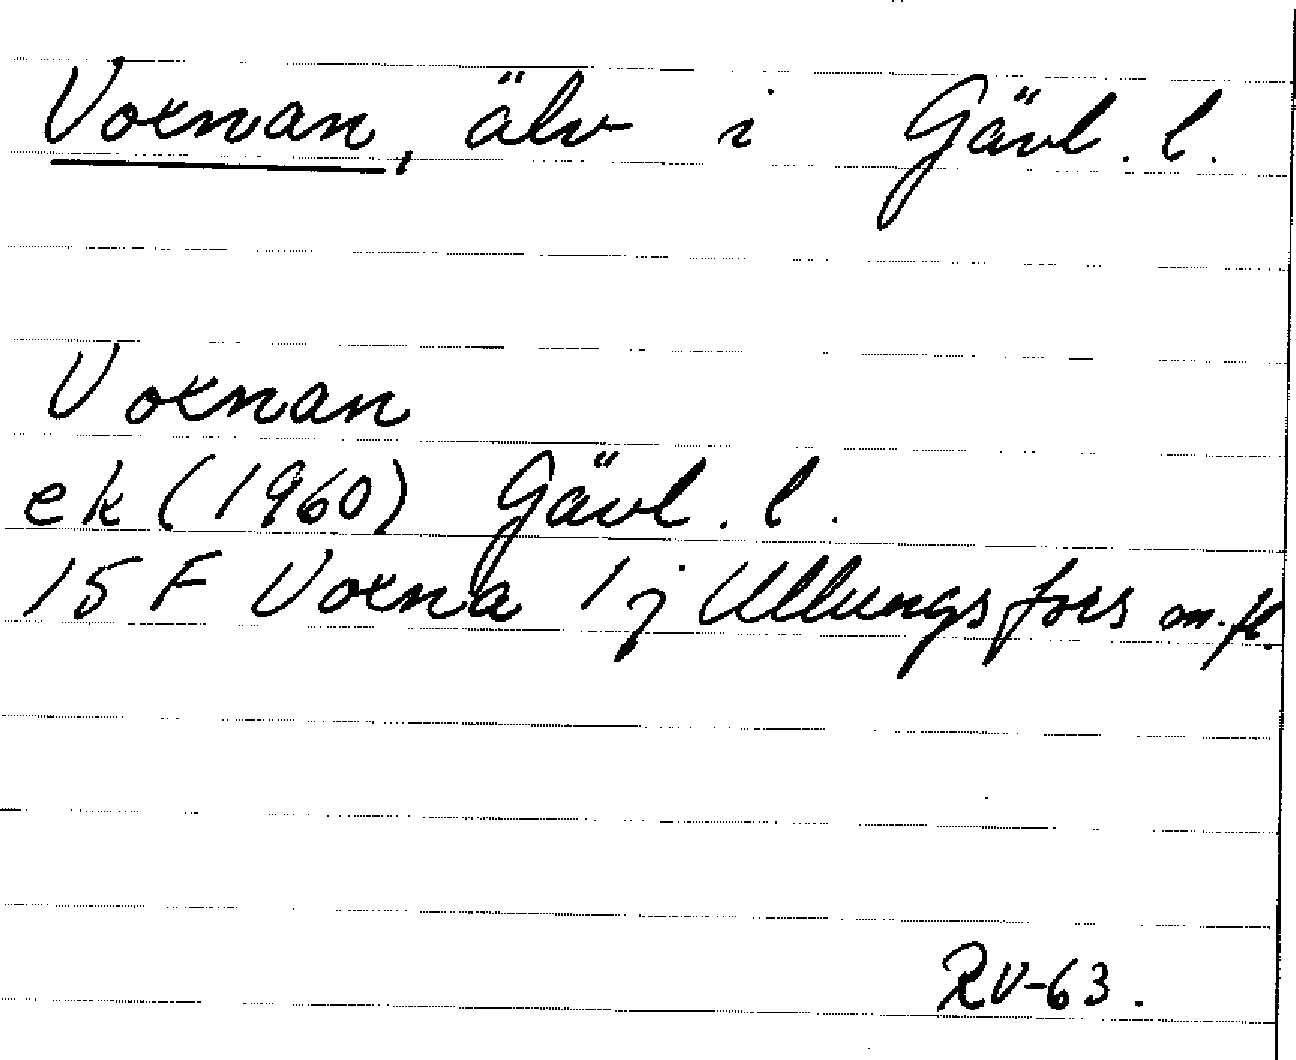 Voxnan, älv i Gävl. l.
Voxnan
ek (1960) Gävl. l.
15 F Voxna 1 j Ullungsfors m. fl.
RV-63.